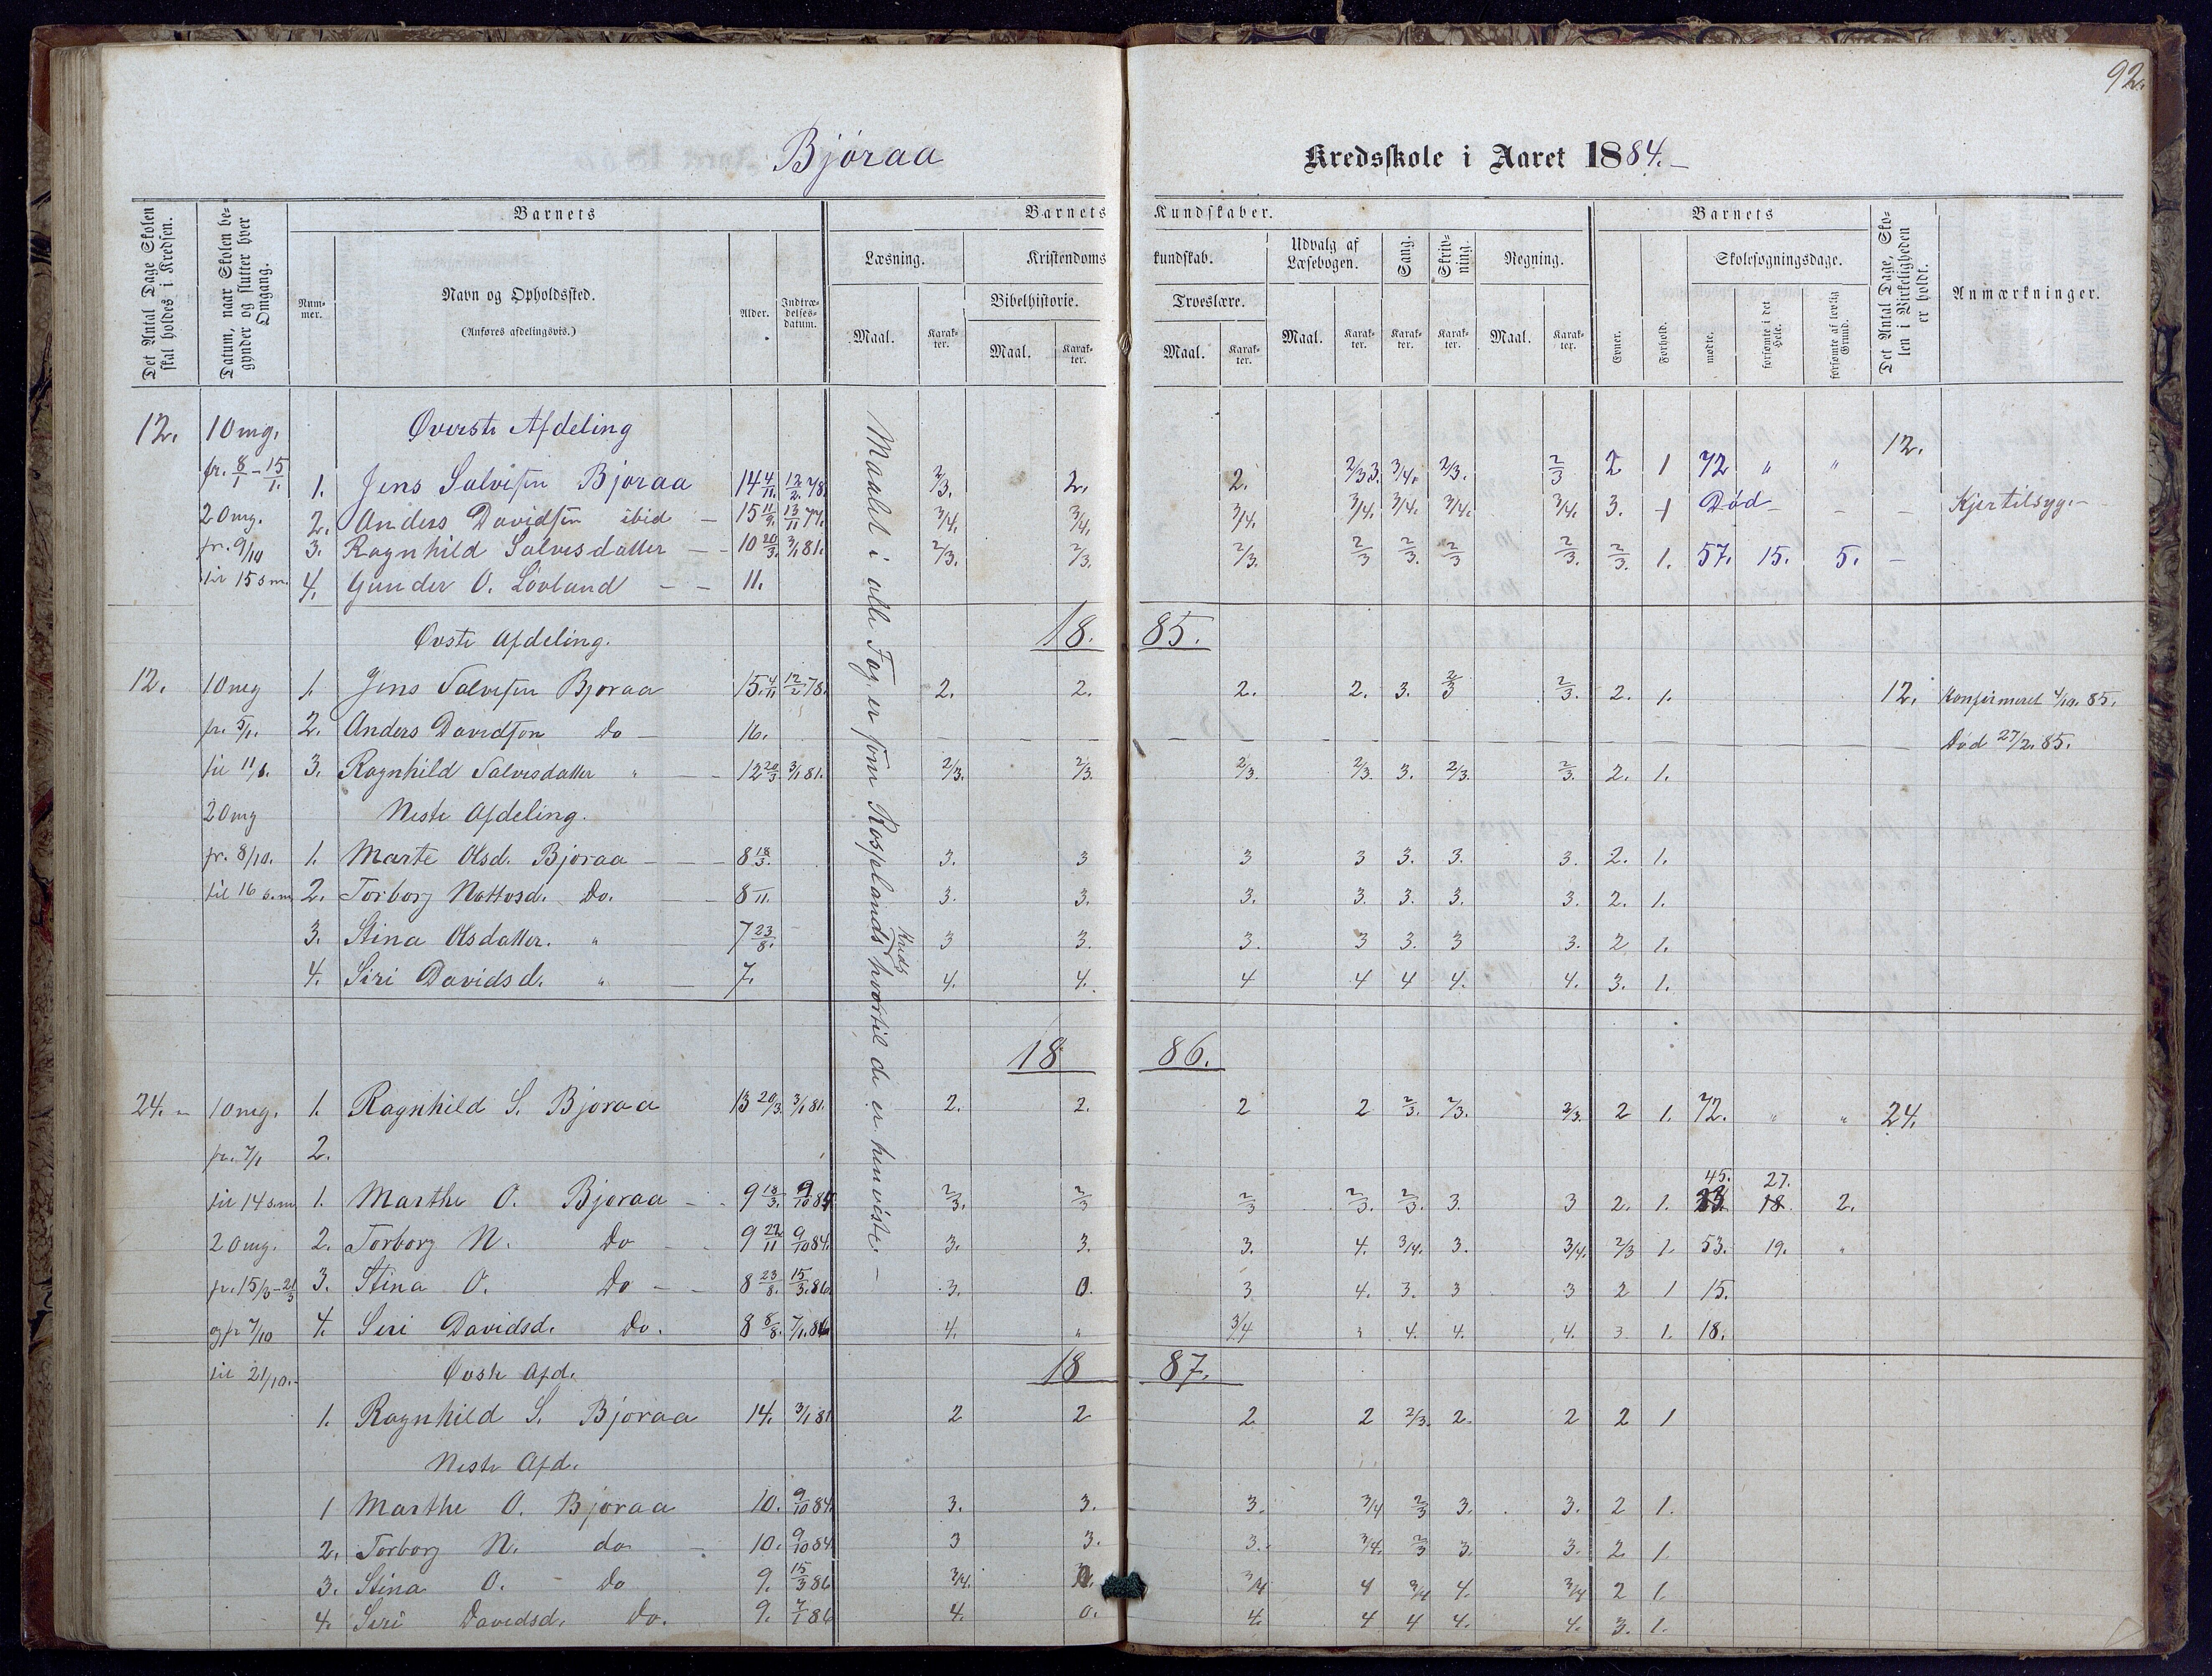 92.
Bjóraa Kredsskole i Aaret 1884.
Det Antal Dage Skolen skal holdes i Kredsen.
Datum, naar Skolen begynder og slutter hver Omgang.
Barnets
Nummer.
Navn og Opholdssted.
(Anføres afdelingsvis.)
Alder.
Indtrædelsesdatum.
Barnets Kundskaber.
Læsning.
Maal. Karakter.
Kristendomskundskab.
Bibelhistorie.
Maal. Karakter.
Troeslære.
Maal. Karakter.
Udvalg af Læsebogen.
Maal. Karakter.
Sang.
Karakter.
Skrivning.
Karakter.
Regning.
Maal. Karakter.
Barnets
Evner.
Forhold.
Skolesøgningsdage.
mødte.
forsømte i det Hele.
forsømte af lovlig Grund.
Det Antal Dage, Skolen i Virkeligheden er holdt.
Anmærkninger.
Maalet i alle Fag er som Rosselands Kreds hvortil de er henviste.
12. 1 Omg. Øverste Afdeling 12.
fr. 8/1 - 15/1. 1. Jens Salvesen Bjoraa 14 4/11. 12/2. 78. 2/3. 2. 2. 2/3 3. 3/4. 2/3. 2/3 2 1 72 " "
2 Omg. 2. Anders Davidsen ibid 15 11/9. 13/11 77. 3/4. 3/4. 3/4. 3/4. 3/4. 3/4. 3/4. 3. 1 Død Kjertilsyge
fr. 9/10 3. Ragnhild Salvesdatter 10 20/3. 3/1 81. 2/3. 2/3. 2/3. 2/3 2/3. 2/3 2/3. 2/3. 1. 57. 15. 5.
til 15 s.m. 4. Gunder O. Lovland 11.
Øvste Afdeling. 18. 85.
12. 1 Omg 1. Jens Salvesen Bjoraa 15 4/11 12/2 78. 2. 2. 2. 2. 3. 2/3 2/3. 2. 1. 12. Konfirmeret 4/10. 85.
fr. 5/1. 2. Anders Davidsen Do 16. Død 27/2. 85.
til 11/1. 3. Ragnhild Salvesdatter " 12 20/3 3/1 81. 2/3. 2/3. 2/3. 2/3. 3. 2/3. 2/3. 2. 1.
2 Omg Neste Afdeling.
fr. 8/10. 1. Marte Olsd. Bjoraa 8 18/3. 3. 3 3 3 3. 3. 3. 2. 1.
til 16 s.m. 2. Torborg Nottosd. Do. 8 11. 3. 3. 3. 3. 3. 3. 3. 2. 1.
3. Stina Olsdatter. " 7 23/8. 3 3. 3. 3 3. 3 3. 2 1.
4. Siri Davidsd. " 7. 4. 4. 4 4 4 4. 4. 3. 1.
18 86.
24. 1 Omg. 1. Ragnhild S. Bjoraa 13 20/3. 3/1 81. 2. 2. 2 2 2/3. 2/3. 2/3. 2 1. 72. " " 24.
fr. 7/1 2.
45. 27.
til 14 s.m 1. Marthe O. Bjoraa 9 18/3. 9/10 84. 2/3. 2/3 2/3 2/3. 2/3. 3. 3 2. 1. 18. 2.
2 Omg. 2. Torborg N. Do 9 22/11 9/10 84. 3. 3. 3. 4. 3/4. 3. 3/4. 2/3 1. 53. 19. "
fr. 15/3 - 21/3 3. Stina O. Do 8 23/8. 15/3. 86 3. 0. 3 4. 3. 3 3 2 1 15.
og fr 7/10 4. Siri Davidsd. Do. 8 8/8. 7/1. 86 4. " 3/4 " 4. 4. 4. 3. 1. 18.
til 21/10. Øvste Afd. 18 87.
1. Ragnhild S. Bjoraa 14. 3/1 81 2 2 2 2 2/3. 2. 2 2 1
Neste Afd.
1 Marthe O. Bjoraa 10. 9/10 84. 3. 3. 3. 3/4 2/3 3. 3. 2 1.
2. Torborg N. do 10. 9/10 84. 3 3. 3. 3/4. 2/3 3. 3. 2 1
3. Stina O. Do 9. 15/3 86 3/4. 3/4 4 3/4 4. 3/4 2 1
4. Siri Davidsd. Do. 9. 7/1 86 4. 0. 4. 4 4 4. 4. 3. 1.